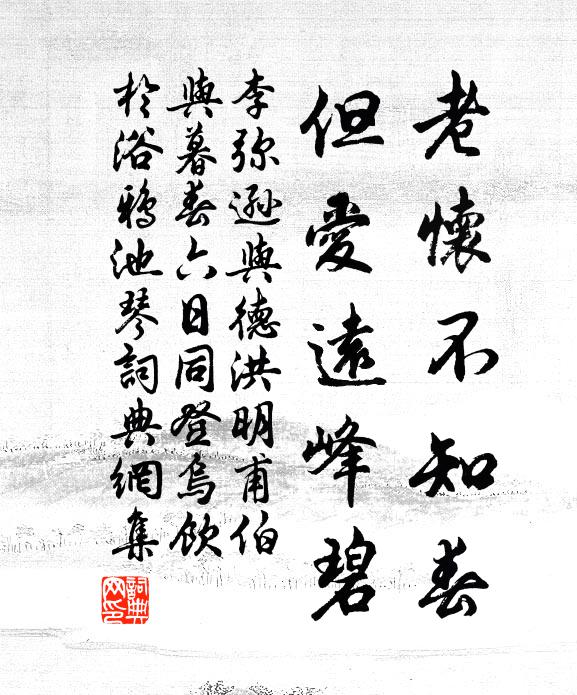 老懷不知春
但愛遠峰碧
李弥遜與德洪明甫伯
與暮春六日同登烏飲
於浴鴉池琴詞典網集
詞典
网印